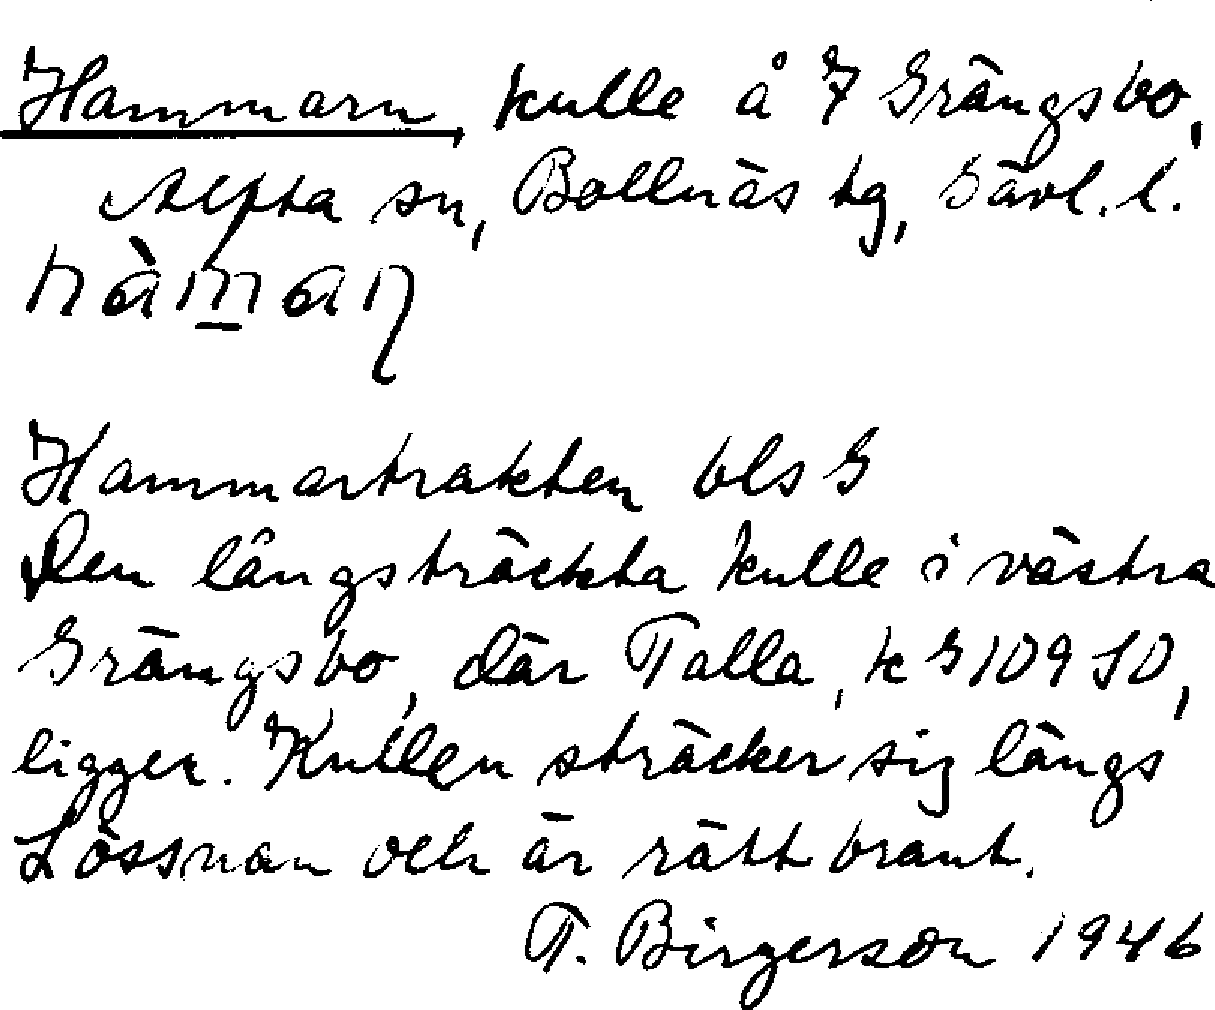 Hammarn, kulle å 7 Grängsbo,
Alfta sn, Bollnäs tg, Gävl. l.
hàman
Hammartrakten bls G
Den långsträckta kulle i västra
Grängsbo, där Talla, k G 109 SO,
ligger. Kullen sträcker sig längs
Lössnan och är rätt brant.
T. Birgerson 1946